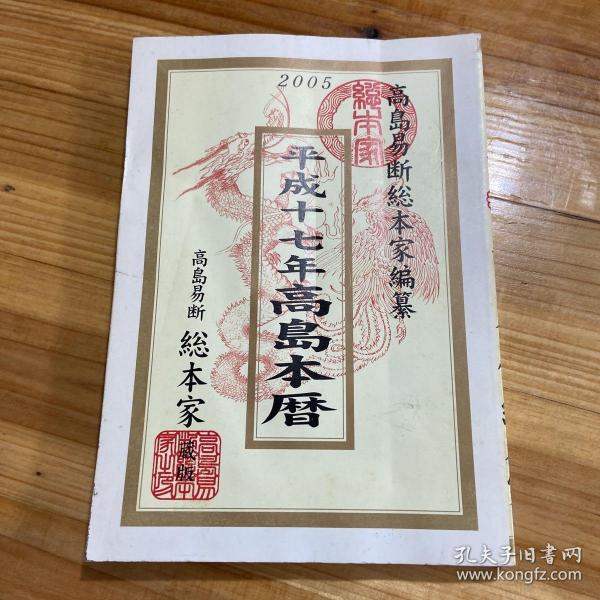 2005
総本家
高島易断総本家編纂
平成十七年高島本暦
高島易断
総本家
蔵版
孔夫子旧书网
www.kongfz.com